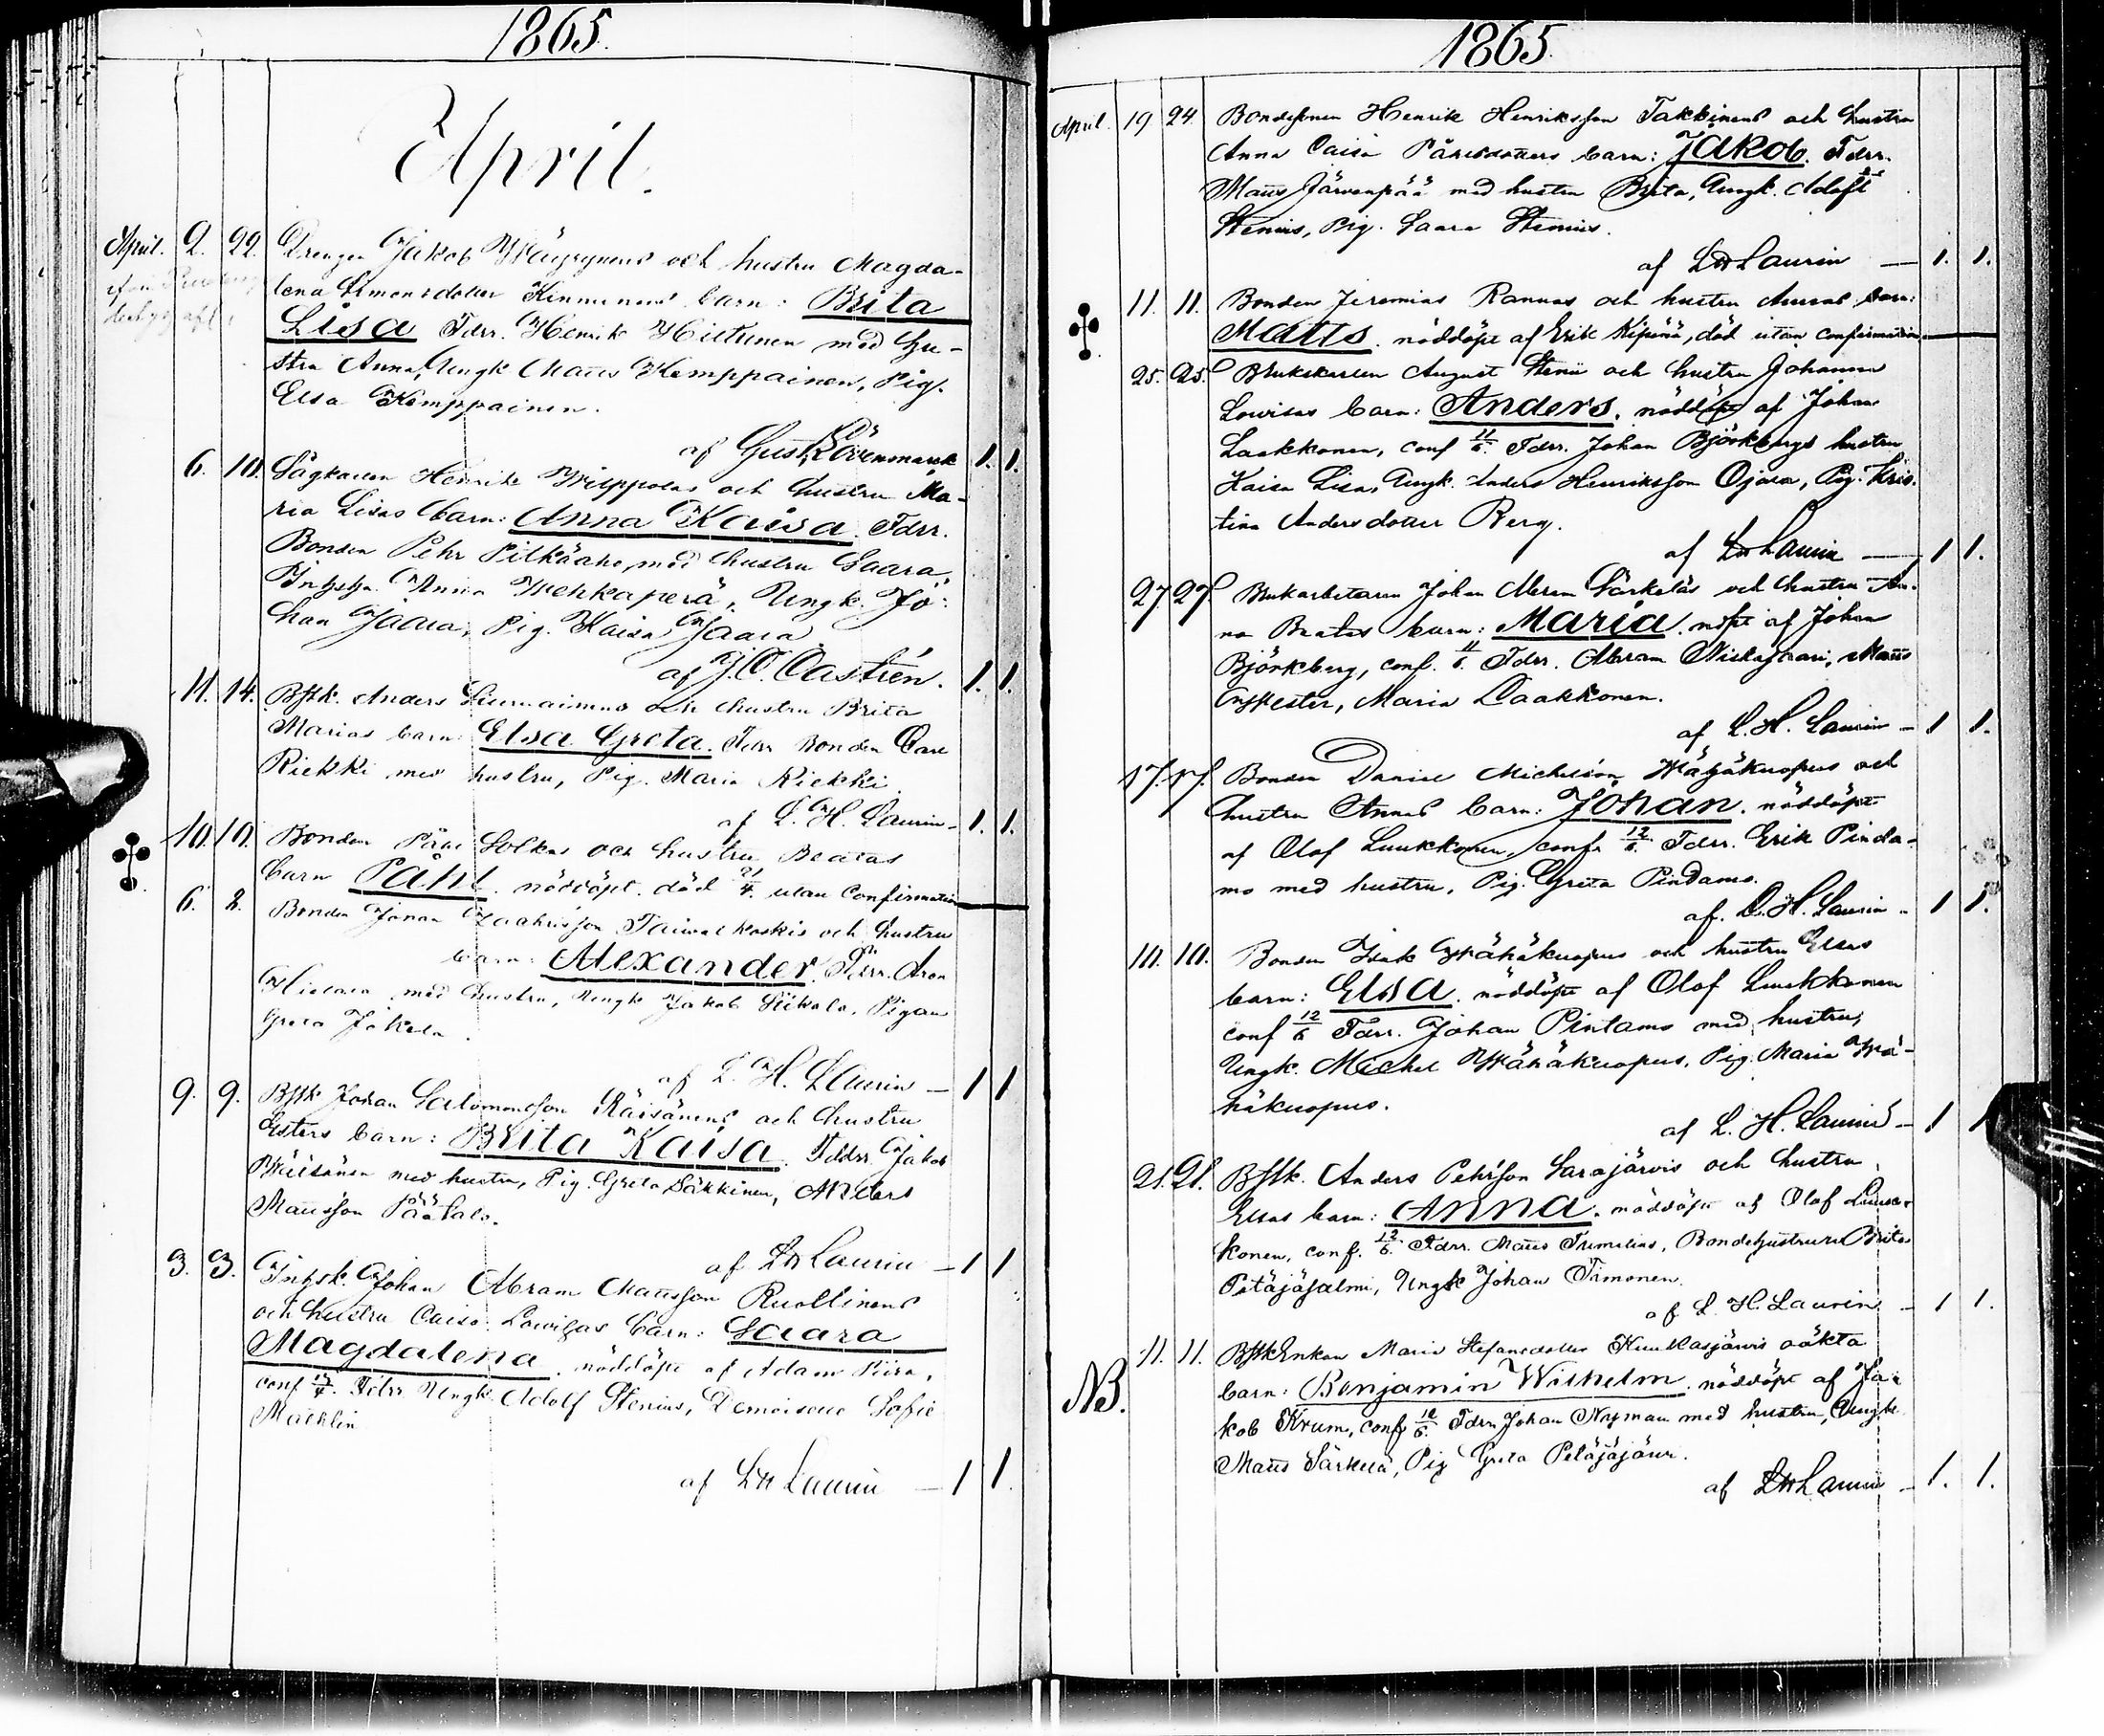 1865.
April.
April. 2. 22. Drengen Jakob Wäyrynens och hustru Magda-
lena Simonsdotter Kinnunens barn: Brita
Lisa Fdrr. Henrik Hiltunen med hu-
stru Anna, Ungk Matts Kemppainen, Pig.
Elsa Kemppainen.
af Gust. Lövenmarck 1. 1.
6. 10. Sågkarlen Henrik Wilppolas och hustru Ma-
ria Lisas barn: Anna Kaisa. Fdrr.
Bonden Pehr Pitkäaho, med hustru Saara,
Anna Wehkaperä, Ungk. Jo-
han Jaara, Pig. Kaisa Jaara
af J. C. Castrén. 1. 1.
11. 14. Bstk. Anders och hustru Brita
Marias barn: Elsa Greta. Fdrr Bonden Carl
Riekki med hustru, Pig. Maria Riekki.
af L. H. Laurin - 1. 1.
10. 10. Bonden Påhl Solkas och hustru Beatas
barn Påhl. nöddöpt. död 21/4. utan confirmation
6. 8. Bonden Johan Zachrisson Taiwalkoskis och hustru
barn: Alexander. Fdrr. Aron
med hustru, Ungk Jakob Siikala, Pigan
Greta Jokela.
af L. H. Laurin - 1 1
9. 9. Bstk Johan Salomonsson Räisänens och hustru
Esters barn: Brita Kaisa. Fddrr. Jakob
Wäisänen med hustru, Pig. Greta Säkkinen, Anders
Mattsson Päätalo.
af LH Laurin - 1 1
3. 3. Inhsk. Johan Abram Mattsson Ruottinens
och hustru Caisa Lovisas barn: Saara
Magdalena. nöddöpt af Adam Piira,
conf 17/4. Fdrr Ungk. Adolf Stenius, Demoiselle Sofie
Macklin
af LH Laurin - 1 1.
1865.
April. 19 24. Bondesonen Henrik Henriksson Takkinens och hustru
Anna Caisa Påhlsdotters barn: Jakob. Fdrr.
Matts Järwenpää med hustru Brita, Ungk. Adolf
Stenius, Pig. Saara Stenius.
af LH Laurin - 1. 1.
11. 11. Bonden Jeremias Rannas och hustru Annas barn:
Matts. nöddöpt af Erik Kipinä, död utan confirmation
25. 25. Brukskarlen August Stenii och hustru Johanna
Lovisas barn: Anders. nöddöpt af Johan
Laakkonen, conf 11/6. Fdrr. Johan Björkbergs hustru
Kaisa Lisa, Ungk. Anders Henriksson Ojara, Pig. Kris-
tina Andersdotter Berg.
af LH Laurin - 1 1.
27. 27. Brukarbetaren Johan Abram Särkeläs och hustru An-
na Beatas barn: Maria. nöpt af Johan
Björkberg, conf. 11/6. Fdrr. Abram Niskajaari, Matts
Wester, Maria Laakkonen.
af L. H. Laurin - 1 1.
17. 17. Bonden Daniel Michelson Wähäkuopus och
hustru Annas barn: Johan. nöddöpt
af Olof Luukkonen, conf. 12/6. Fdrr. Erik Pinda-
mo med hustru, Pig. Greta Pindamo.
af. L. H. Laurin - 1 1.
10. 10. Bonden Isak Wähäkuopus och hustru Elsas
barn: Elsa. nöddöpt af Olof Luukkonen
conf 12/6 Fdrr. Johan Pintamo med hustru,
Ungk. Michel Wähäkuopus. Pig. Maria Wä-
häkuopus.
af L. H. Laurin - 1 1
21. 21. Bstk. Anders Pehrsson Sarajärvis och hustru
Elsas barn: Anna. nöddöpt af Olof Luuk-
konen, conf. 12/6. Fdrr. Matts Tumelius, Bondehustrun Brita
Petäjäjalmi, Ungk Johan Timonen.
af L. H. Laurin - 1 1.
NB. 11. 11. BstkEnkan Maria Stefansdotter Kuukasjärvis oäkta
barn: Benjamin Wilhelm. nöddöpt af Ja-
kob Krum, conf 12/6. Fdrr Johan Nyman med hustru, Ungk
Matts Särkelä, Pig Greta Petäjäjärvi.
af LH Laurin - 1. 1.